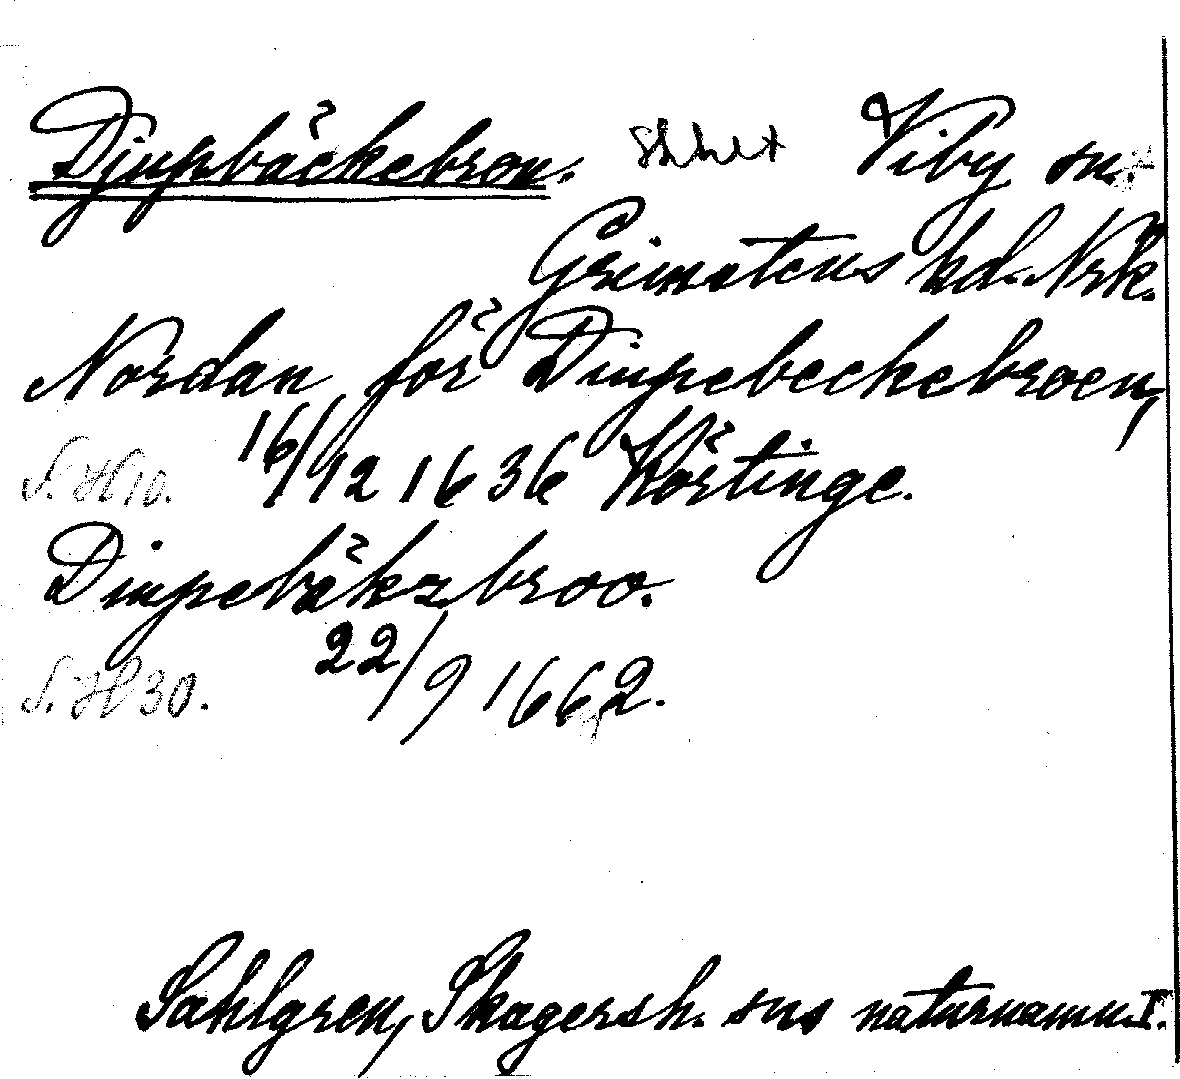 Djupbäckebron. Viby sn.
Grimstens hd. Nrk.
Nordan för Diupebeckebroen,
S. H 10. 16/12 1636 Körtinge.
Diupebäkz broo.
S. H 30. 22/9 1662.
Sahlgren, Skagersh. sns naturnamn I.